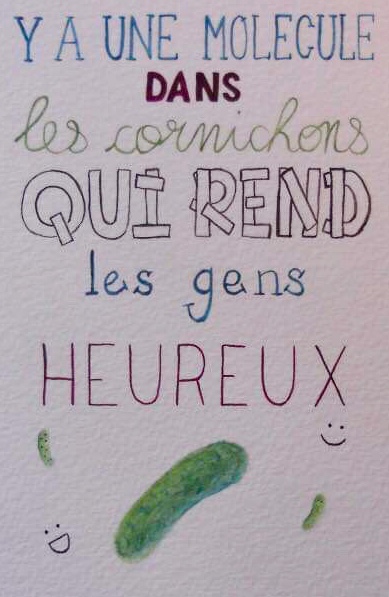 Y A UNE MOLECULE
DANS
les cornichons
QUI REND
les gens
HEUREUX